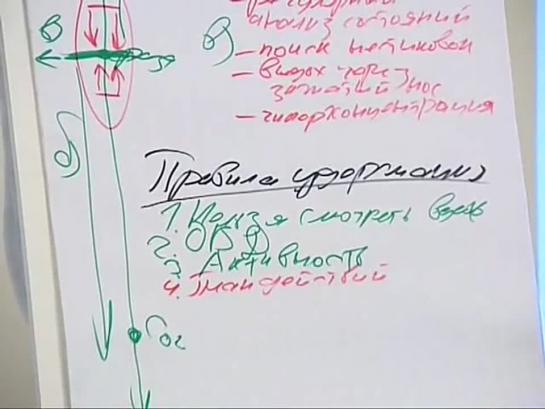 анализ состояний
в)
- поиск нетиковой
- выдох через
зажатый нос
- гиперконцентрация
В
фаза
б)
Правила удержания
1. Нельзя смотреть вдаль
2. ОВД
3. Активность
4. План действий
Гос